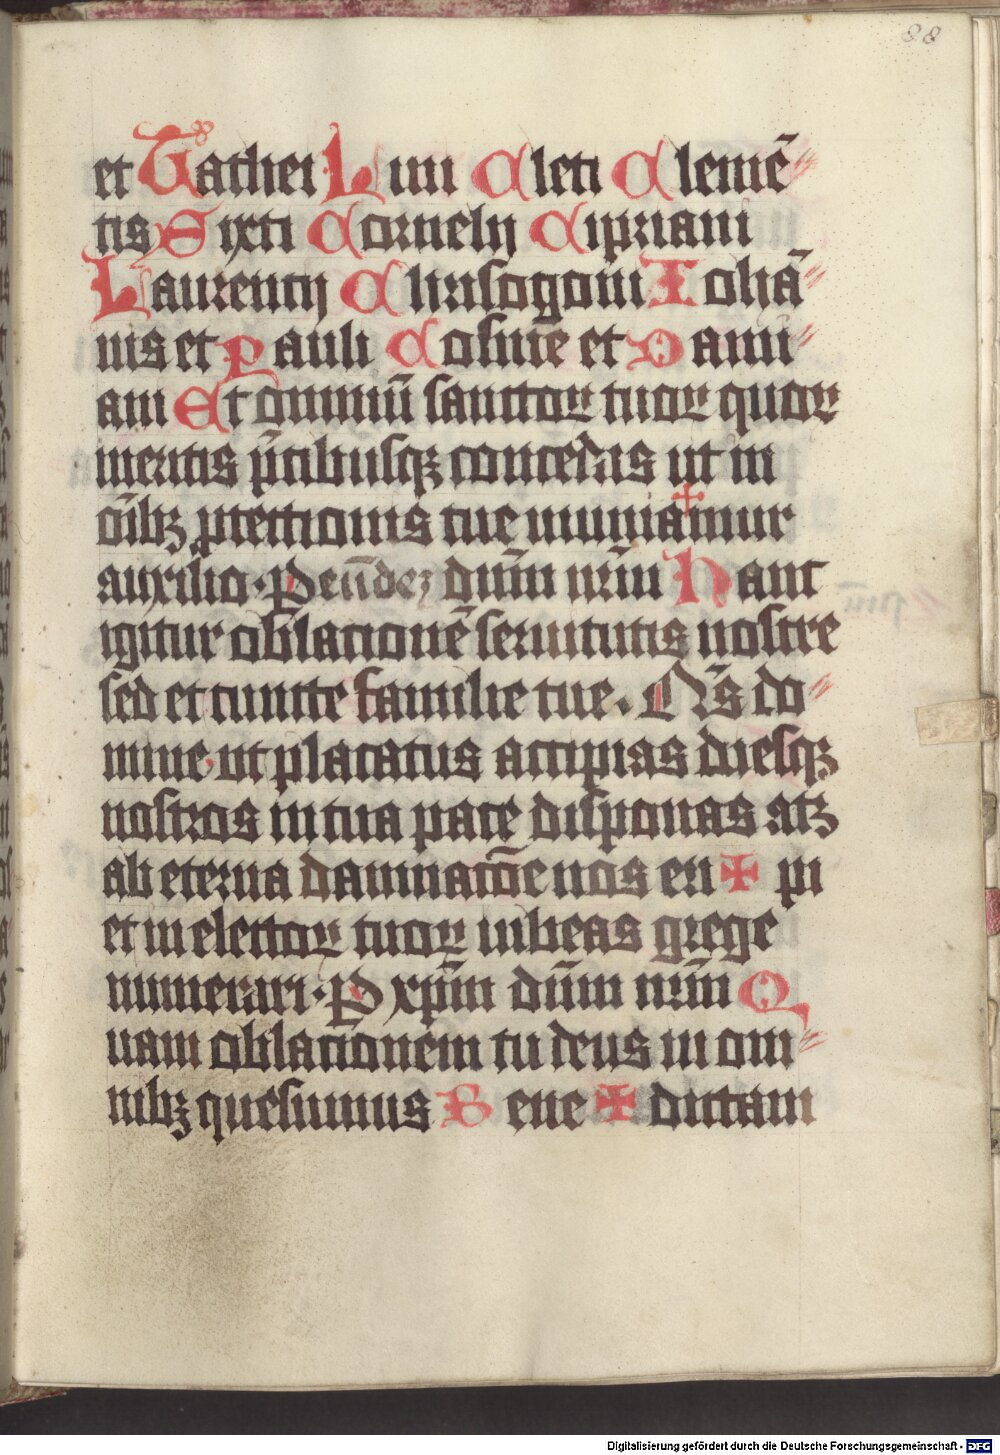 88
et Tathei Lini Cleti Clemē
tis Sixti Cornelij Cipriani
Laurencij Crisogoni Iohā
nis et Pauli Cosme et Dami
ani Et omniū sanctoꝝ tuoꝝ quoꝝ
meritis p̄cibusqꝫ concedas ut in
oīb[ꝫ] ꝓtectionis tue muniamur
auxilio. P eūdeꝫ dn̄m nr̄m Hanc
igitur oblacionē seruitutis nostre
sed et cuncte familie tue. Qs̄ do
mine ut placatus accipias diesqꝫ
nostros in tua pace disponas atꝫ
ab eterna damnatōe nos eri ✠ pi
et in electoꝝ tuoꝝ iubeas grege
numerari. P xp̄m dn̄m nr̄m Q
uam oblacionem tu deus in om
nibꝫ quesumus Bene ✠ dictam
Digitalisierung gefördert durch die Deutsche Forschungsgemeinschaft - DFG